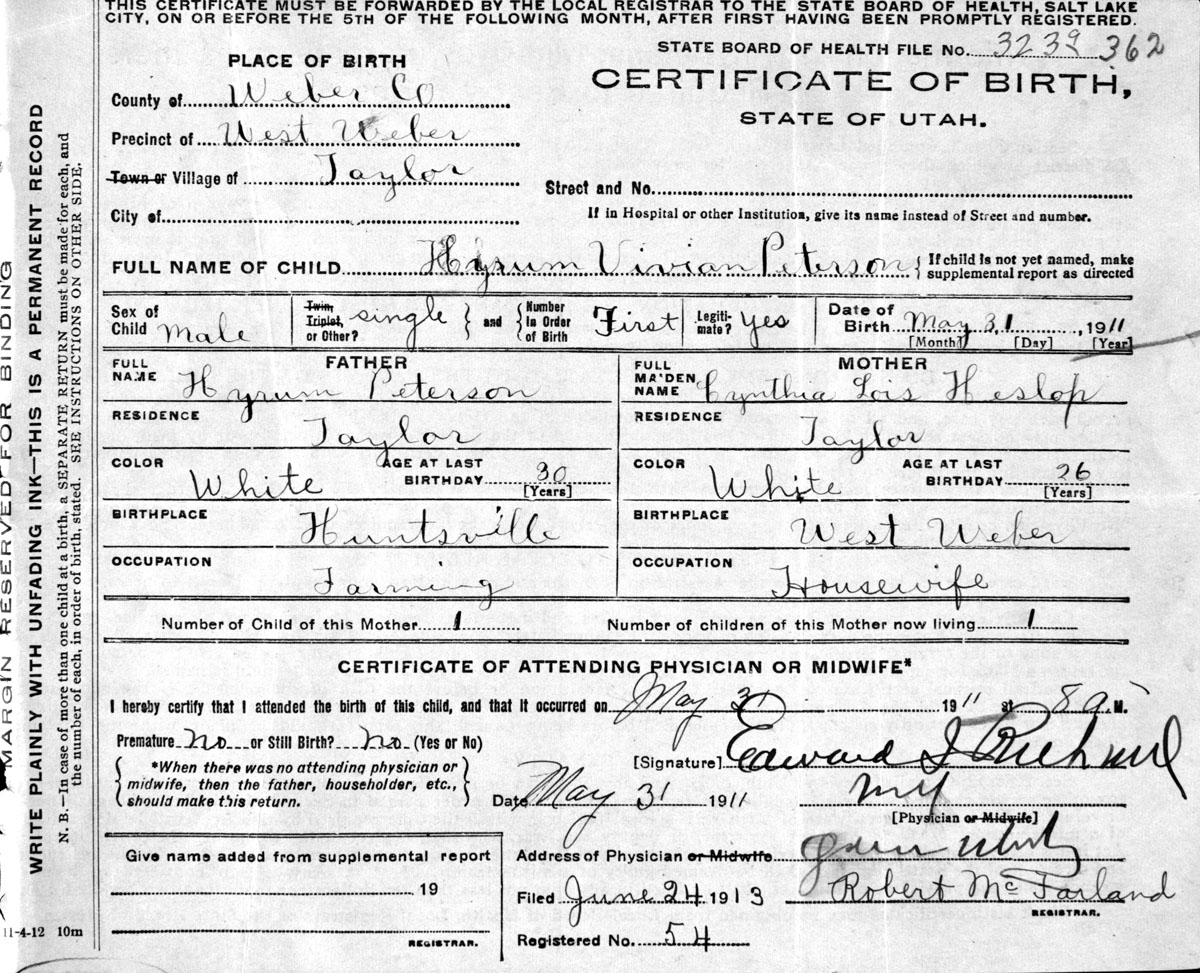 THIS CERTIFICATE MUST BE FORWARDED BY THE LOCAL REGISTRAR TO THE STATE BOARD OF HEALTH, SALT LAKE
CITY, ON OR BEFORE THE 5TH OF THE FOLLOWING MONTH, AFTER FIRST HAVING BEEN PROMPTLY REGISTERED.
STATE BOARD OF HEALTH FILE No. 3239 362
PLACE OF BIRTH
CERTIFICATE OF BIRTH,
STATE OF UTAH.
County of Weber Co
Precinct of West Weber
Town or Village of Taylor
Street and No.
City of
If in Hospital or other Institution, give its name instead of Street and number.
FULL NAME OF CHILD Hyrum Vivian Peterson { If child is not yet named, make
supplemental report as directed
Sex of Child Male
Twin, Triplet, or Other? single } and { Number in Order of Birth First
Legitimate? Yes
Date of Birth May 31, 1911
[Month] [Day] [Year]
FATHER
FULL NAME Hyrum Peterson
RESIDENCE Taylor
COLOR White AGE AT LAST BIRTHDAY 30 [Years]
BIRTHPLACE Huntsville
OCCUPATION Farming
MOTHER
FULL MAIDEN NAME Cynthia Lois Heslop
RESIDENCE Taylor
COLOR White AGE AT LAST BIRTHDAY 26 [Years]
BIRTHPLACE West Weber
OCCUPATION Housewife
Number of Child of this Mother 1 Number of children of this Mother now living 1
CERTIFICATE OF ATTENDING PHYSICIAN OR MIDWIFE*
I hereby certify that I attended the birth of this child, and that it occurred on May 31 1911 at 8 a M.
Premature No or Still Birth? No (Yes or No)
{ *When there was no attending physician or
midwife, then the father, householder, etc.,
should make this return. }
[Signature] Edward I
Date May 31 1911
[Physician or Midwife]
Address of Physician or Midwife
Filed June 24 1913 Robert McFarland
REGISTRAR.
Registered No. 54
Give name added from supplemental report
19
REGISTRAR.
11-4-12 10m
MARGIN RESERVED FOR BINDING
WRITE PLAINLY WITH UNFADING INK—THIS IS A PERMANENT RECORD
N. B.—In case of more than one child at a birth, a SEPARATE RETURN must be made for each, and
the number of each, in order of birth, stated. SEE INSTRUCTIONS ON OTHER SIDE.